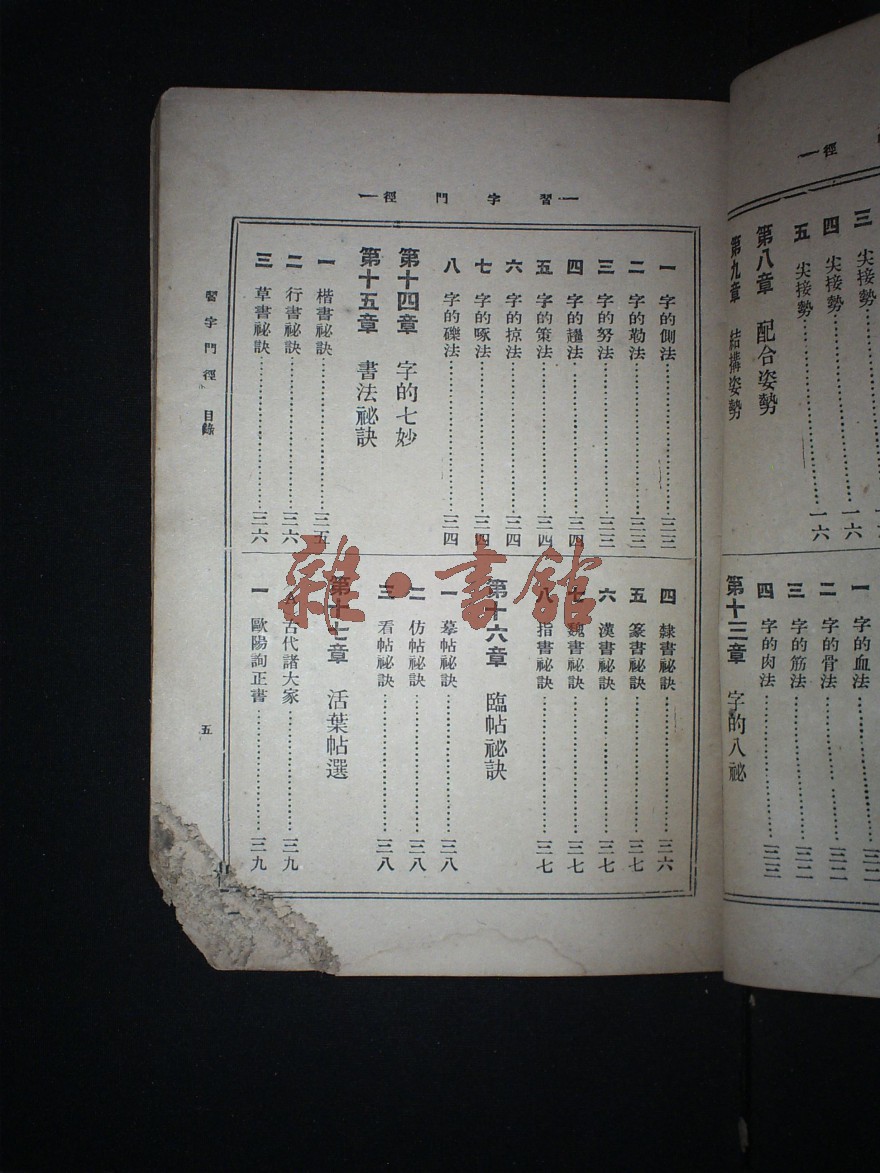 習字門徑
一 字的側法 三三
二 字的勒法 三三
三 字的努法 三三
四 字的趯法 三四
五 字的策法 三四
六 字的掠法 三四
七 字的啄法 三四
八 字的磔法 三四
第十四章 字的七妙
第十五章 書法祕訣
一 楷書祕訣 三五
二 行書祕訣 三六
三 草書祕訣 三六
四 隸書祕訣 三六
五 篆書祕訣 三七
六 漢書祕訣 三七
七 魏書祕訣 三七
八 指書祕訣 三七
第十六章 臨帖祕訣
一 摹帖祕訣 三八
二 仿帖祕訣 三八
三 看帖祕訣 三八
第十七章 活葉帖選
古代諸大家 三九
一 歐陽詢正書 三九
習字門徑 目錄
五
徑
三 尖接勢
四 尖接勢 一六
五 尖接勢 一六
第八章 配合姿勢
第九章 結構姿勢
一 字的血法 三二
二 字的骨法 三二
三 字的筋法 三二
四 字的肉法 三三
第十三章 字的八祕
雜·書館